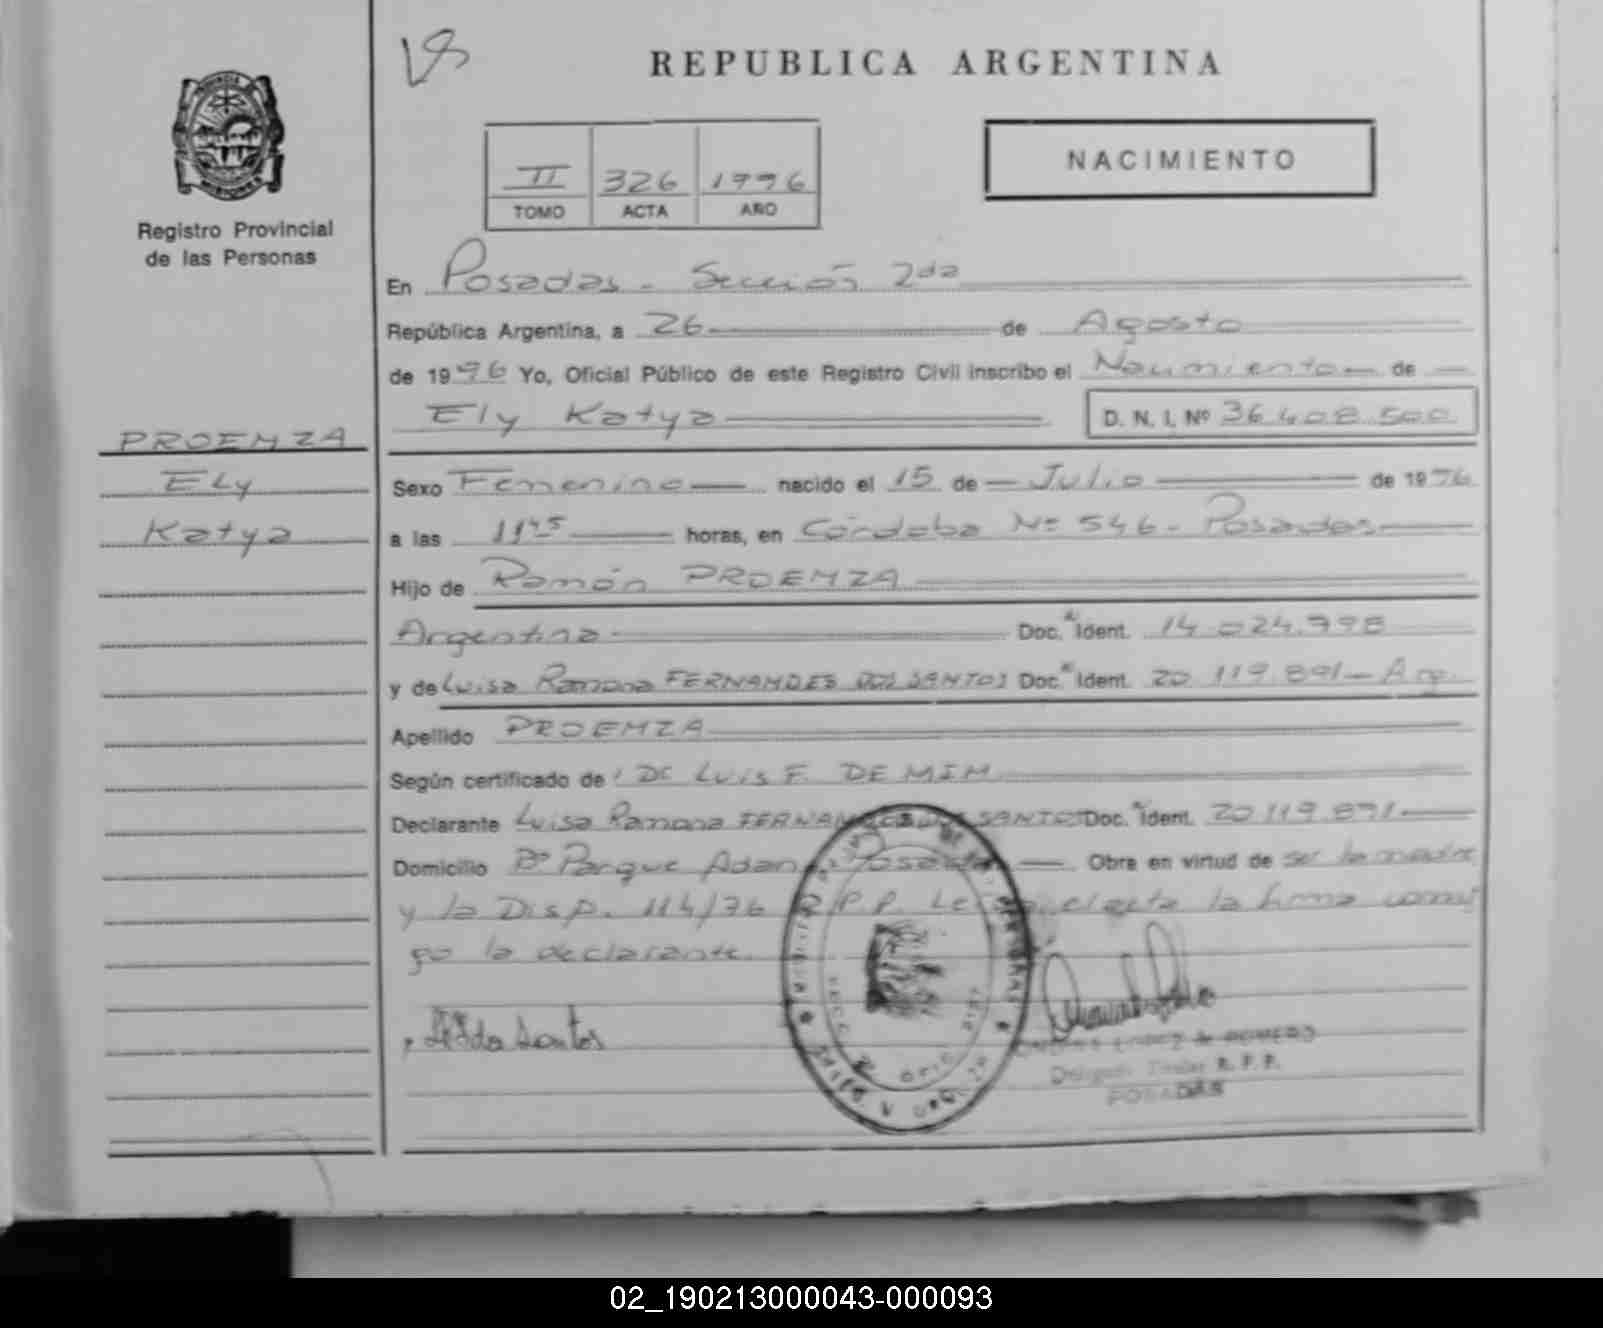 REPUBLICA ARGENTINA
NACIMIENTO
II 326 1996
TOMO ACTA AÑO
PROVINCIA
MISIONES
Registro Provincial
de las Personas
PROEMZA
Ely
Katya
En Posadas - Sección 2da
República Argentina, a 26 de Agosto
de 1996 Yo, Oficial Público de este Registro Civil inscribo el Nacimiento de
Ely Katya D. N. I. Nº 36.408.500
Sexo Femenino nacido el 15 de Julio de 1996
a las 11 45 horas, en Córdoba Nº 546 - Posadas
Hijo de Ramón PROEMZA
Argentina Doc. Ident. 14.024.998
y de Luisa Ramona FERNANDES DOS SANTOS Doc. Ident. 20.119.891 - Arg.
Apellido PROEMZA
Según certificado de Dr Luis F. DE MIM
Declarante Luisa Ramona FERNANDES DOS SANTOS Doc. Ident. 20.119.891
Domicilio Bº Parque Adam Posadas Obra en virtud de ser la madre
y la Disp. 114/96 R.P.P. Leída el acta la firma conmi
go la declarante.
Santos
LOPEZ de ROMERO
Delegada Titular R. P. P.
POSADAS
02_190213000043-000093